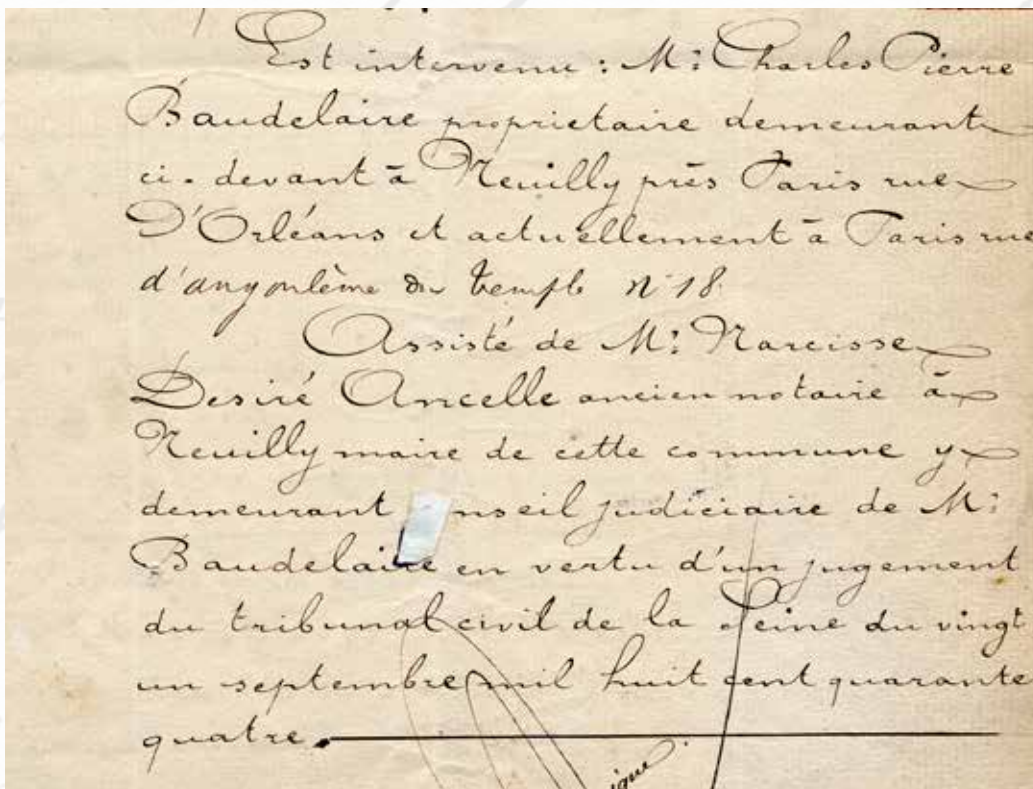 Est intervenu : Mr Charles Pierre
Baudelaire proprietaire demeurant
ci-devant à Neuilly près Paris rue
D'Orléans et actuellement à Paris rue
d'angoulème du temple n° 18.
Assisté de Mr Narcisse
Desiré Ancelle ancien notaire à
Neuilly maire de cette commune y
demeurant nseil judiciaire de Mr
Baudelaire en vertu d'un jugement
du tribunal civil de la Seine du vingt
un septembre mil huit cent quarante
quatre.